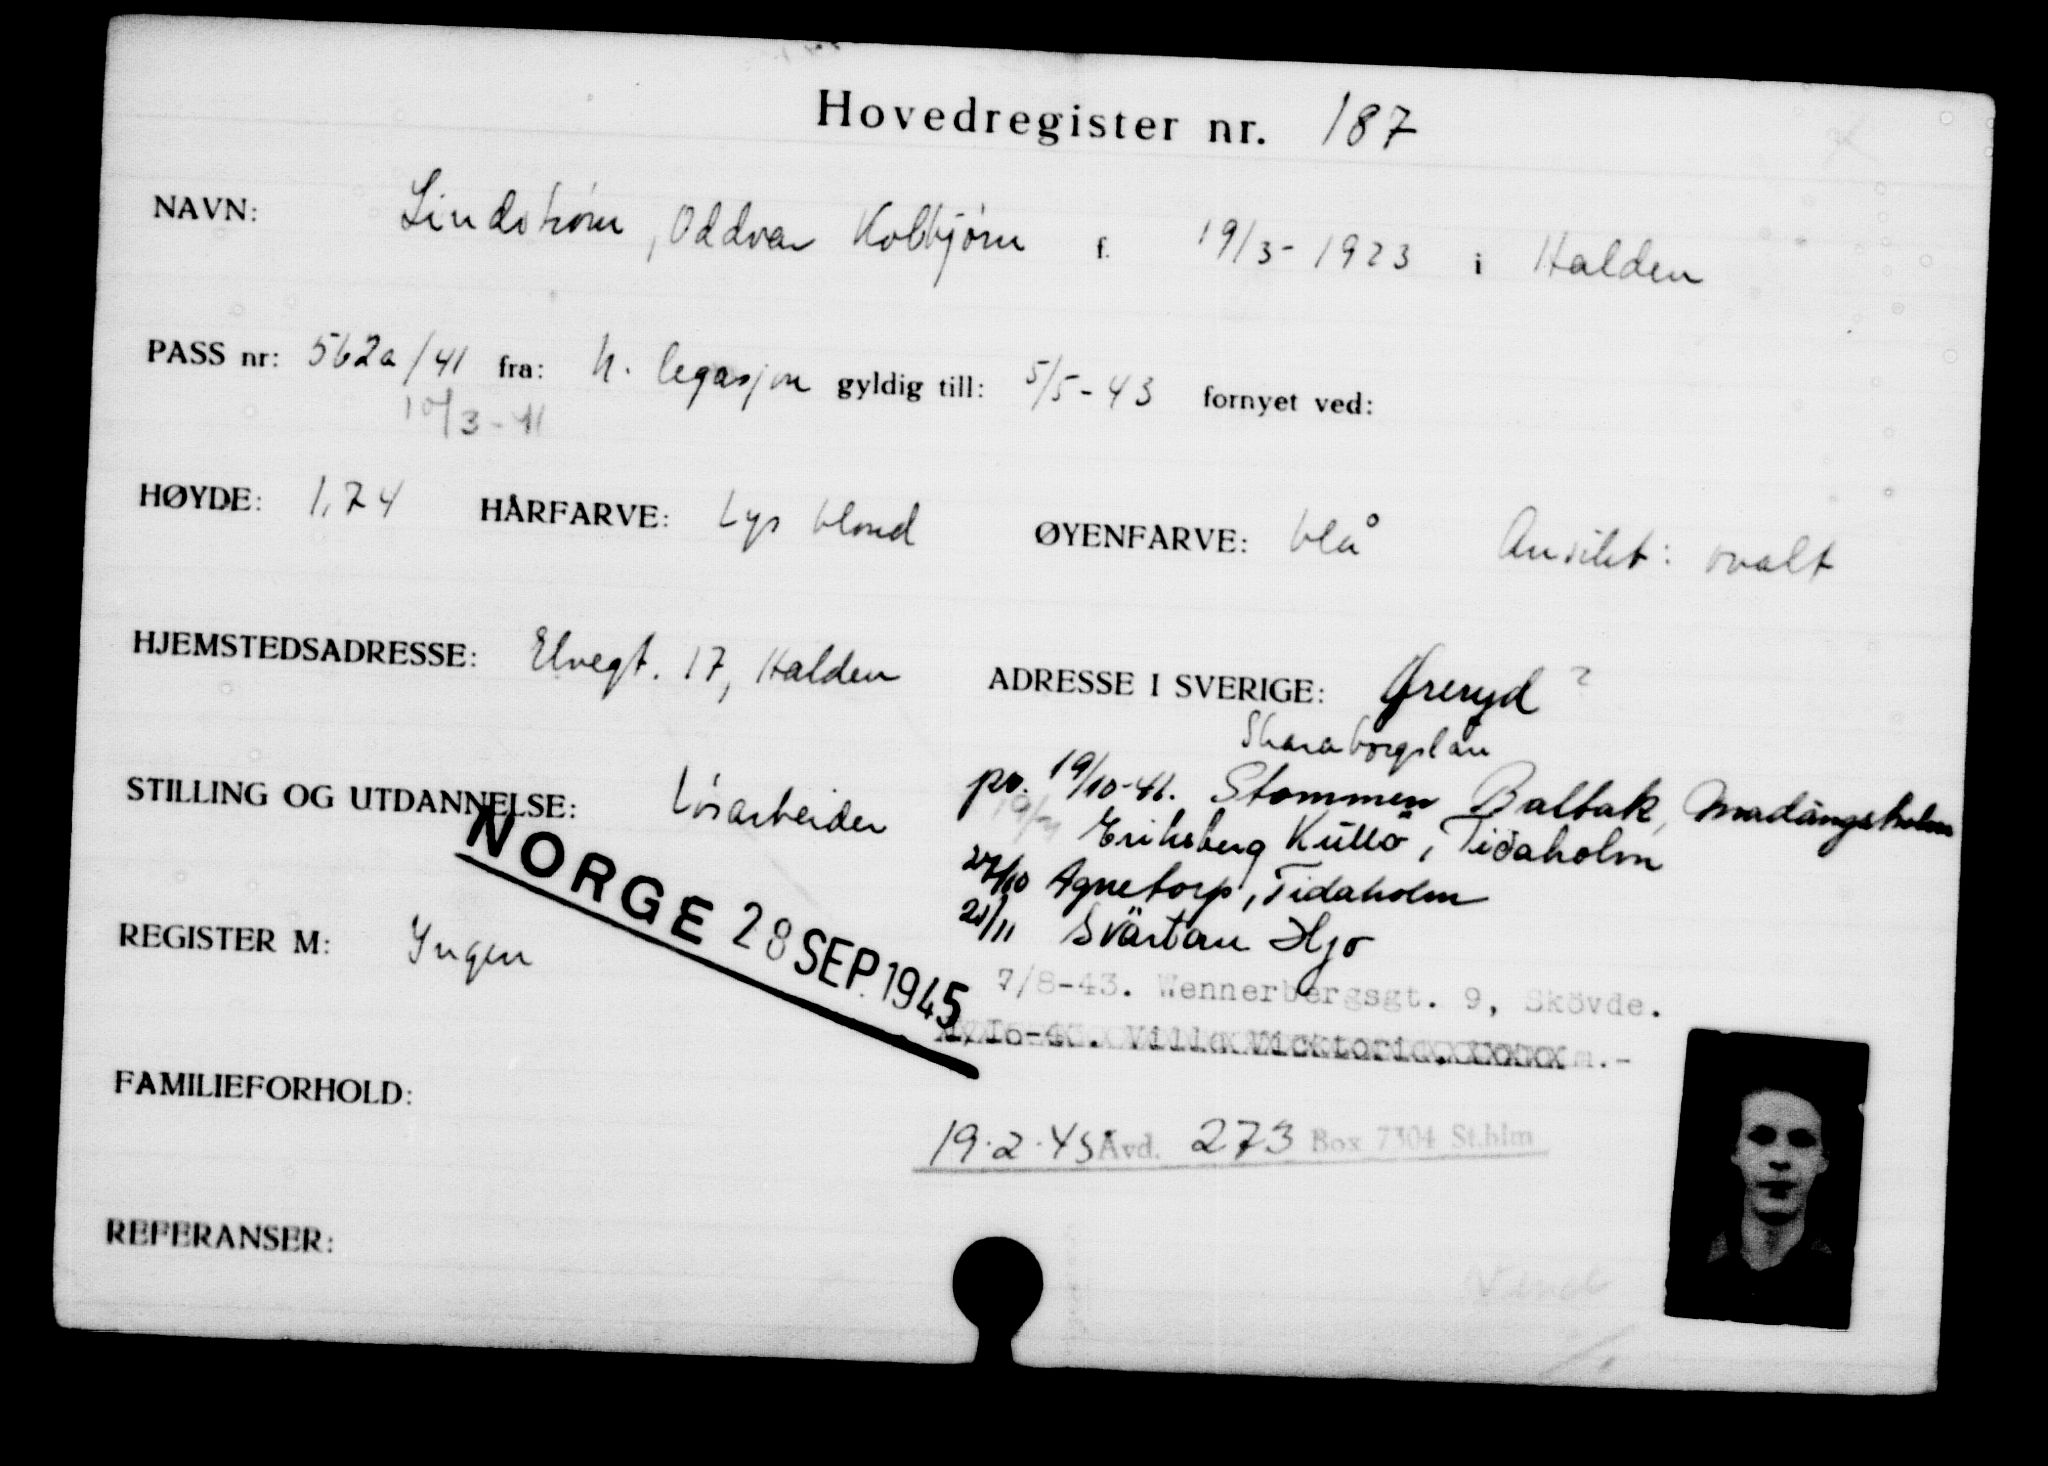 Hovedregister nr. 187
NAVN: Lindstrøm, Oddvar Kolbjørn f. 19/3-1923 i Halden
PASS nr: 562a/41 fra: N. legasjon gyldig till: 5/5-43 fornyet ved:
10/3-41
HØYDE: 1,74 HÅRFARVE: Lys blond ØYENFARVE: blå Ansikt: ovalt
HJEMSTEDSADRESSE: Elvegt. 17, Halden ADRESSE I SVERIGE: Øreryd ?
Skaraborgslän
STILLING OG UTDANNELSE: Løsarbeider pr. 19/10-41. Stommen Baltak, Madängsholm
Eriksberg Kullö, Tidaholm
27/10 Agnetorp, Tidaholm
NORGE 28 SEP. 1945
REGISTER M: Ingen 21/11 Svärtan Hjo
7/8-43. Wennerbergsgt. 9, Skövde.
Villa Vicktoria.
FAMILIEFORHOLD:
19.2.45 Avd. 273 Box 7304 St.hlm
REFERANSER:
Vend